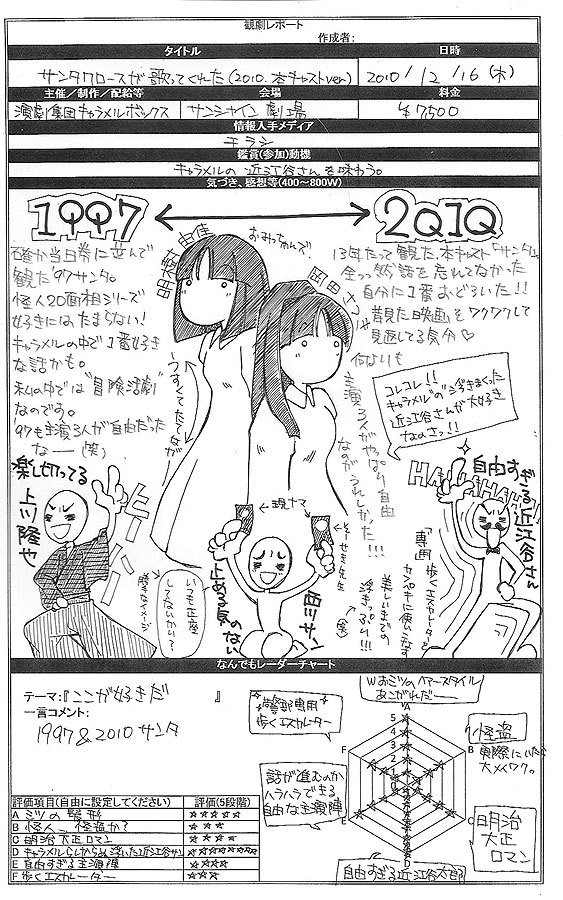 観劇レポート
作成者:
タイトル
日時
サンタクロースが歌ってくれた(2010.本キャストver)
2010/12/16(木)
主催/制作/配給等
会場
料金
演劇集団キャラメルボックス
サンシャイン劇場
¥7500
情報入手メディア
チラシ
鑑賞(参加)動機
キャラメルの近江谷さんを味わう。
気づき、感想等(400~800W)
1997
2010
確か当日券に並んで
観た'97サンタ。
怪人20面相シリーズ
好きにはたまらない!
キャラメルの中で1番好き
な話かも。
私の中では"冒険活劇"
なのです。
'97も主演3人が自由だった
なー(笑)
おみっちゃんズ!
岡田さつき
13年たって観た、本キャスト「サンタ」。
全っ然話を忘れてなかった
自分に1番おどろいた!!
昔見た映画をワクワクして
見返してる気分♡
主演3人がやっぱり自由
なのがうれしかった!!!
コレコレ!!
キャラメル"の"浮きまくった
近江谷さんが大好き
なのさっ!!
楽し切ってる
上川隆也
いつも正座
してないかい?
止める気のない
西川サン
自由すぎる近江谷さん
HAHAHAHA
歩くエスカレーターを
カンペキに使いこなす
美しいまでの
浮きっぷり!!!
なんでもレーダーチャート
テーマ:『ここが好きだ』
一言コメント:
1997&2010サンタ
Wおみツのヘアースタイル
あこがれだー
警部専用
歩くエスカレーター
怪盗
実際にいたら
大メイワク。
話が進むのか
ハラハラできる
自由な主演陣
明治
大正
ロマン
自由すぎる近江谷太朗
A
5
4
3
2
1
0
B
C
D
E
F
評価項目(自由に設定してください)
評価(5段階)
A ミツの髪形 ☆☆☆☆☆
B 怪人…怪盗か? ☆☆☆
C 明治大正ロマン ☆☆☆☆
D キャラメルCしからぬ浮いた近江谷サン ☆☆☆☆☆☆☆☆
E 自由すぎる主演陣 ☆☆☆☆
F 歩くエスカレーター ☆☆☆